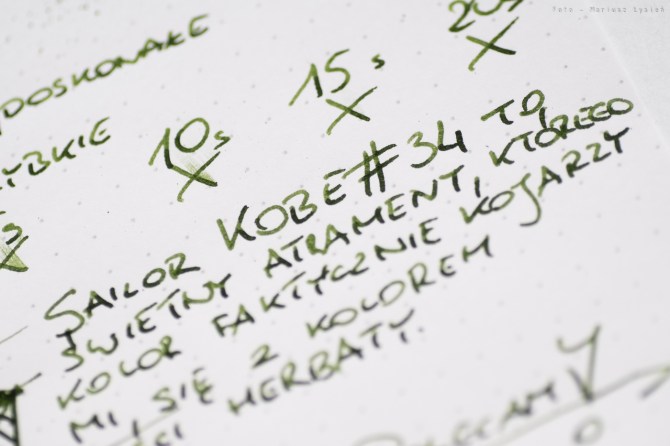 Foto - Mariusz Łysiak
20s
DOSKONAŁE
15s
10s
SAILOR KOBE #34 TO
ŚWIETNY ATRAMENT, KTÓREGO
KOLOR FAKTYCZNIE KOJARZY
MI SIĘ Z KOLOREM
HERBATY.